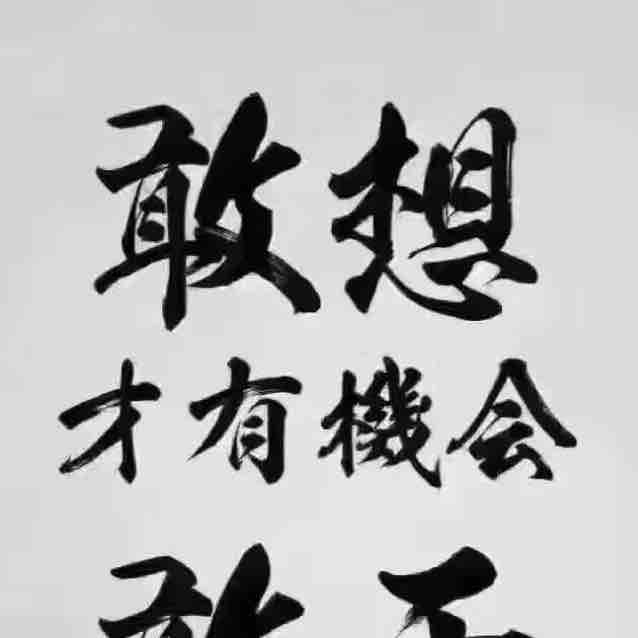 敢想
才有機会
敢